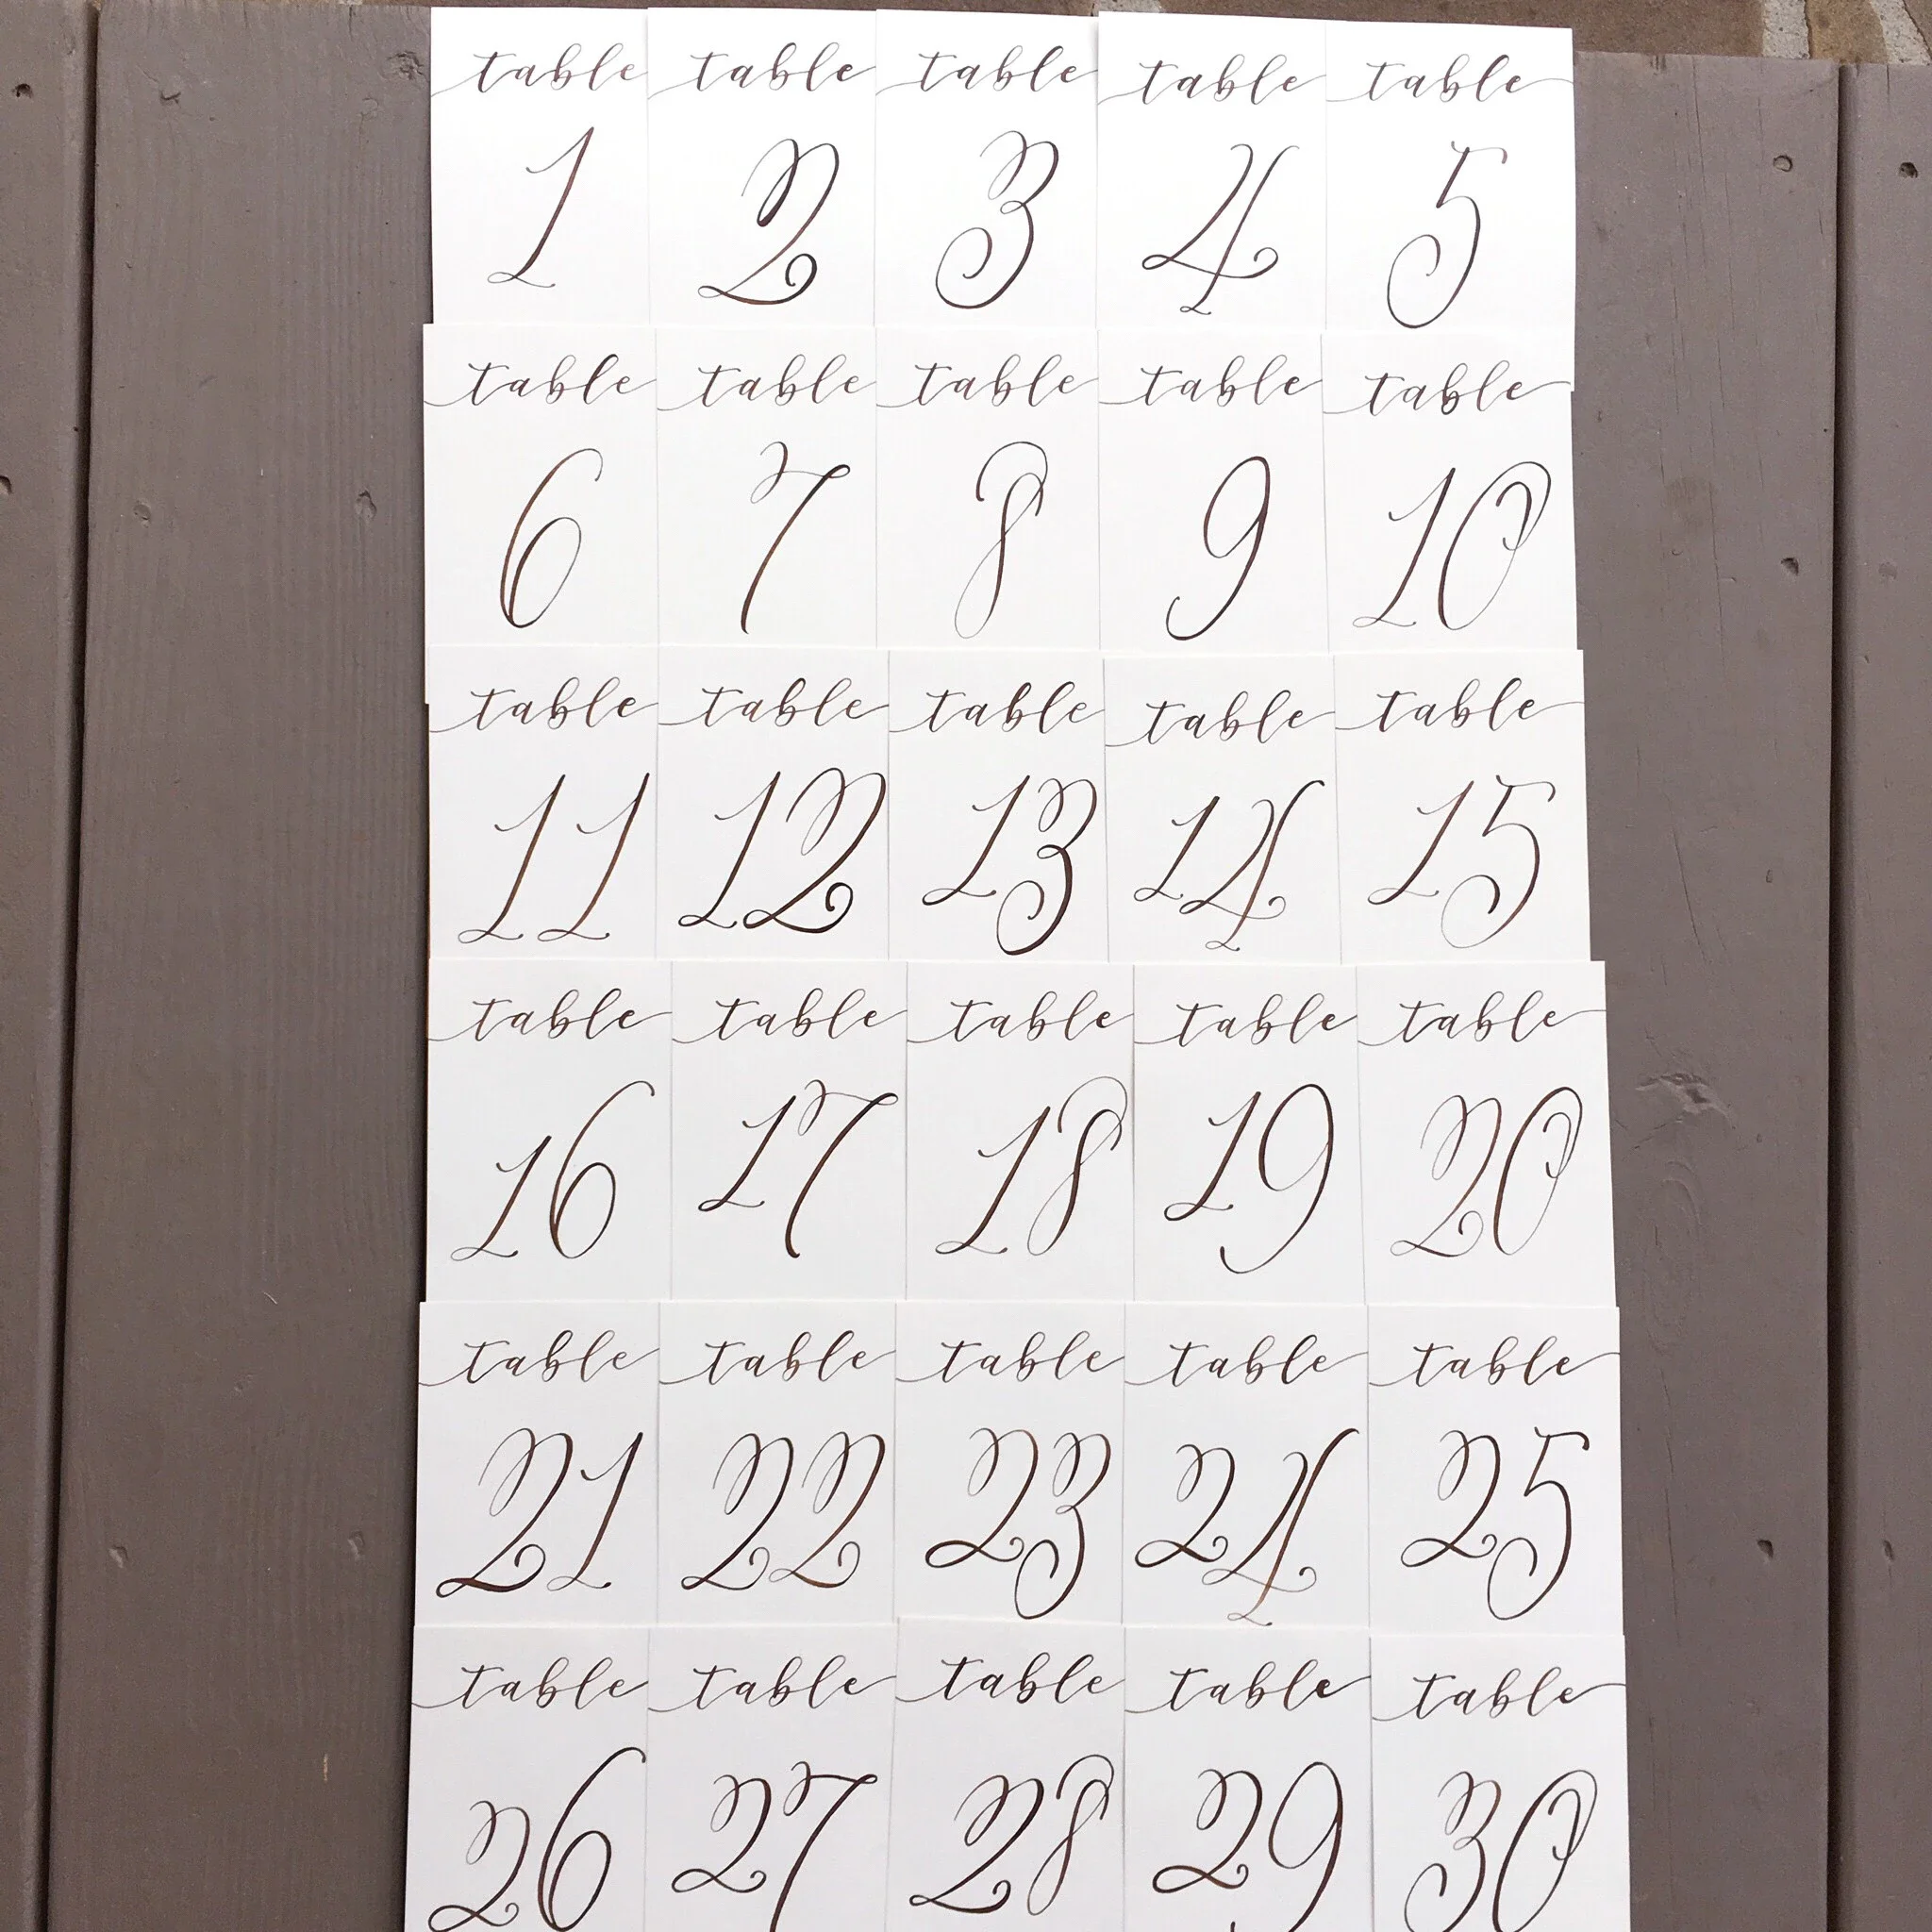 table table table table table
1 2 3 4 5
table table table table table
6 7 8 9 10
table table table table table
11 12 13 14 15
table table table table table
16 17 18 19 20
table table table table table
21 22 23 24 25
table table table table table
26 27 28 29 30